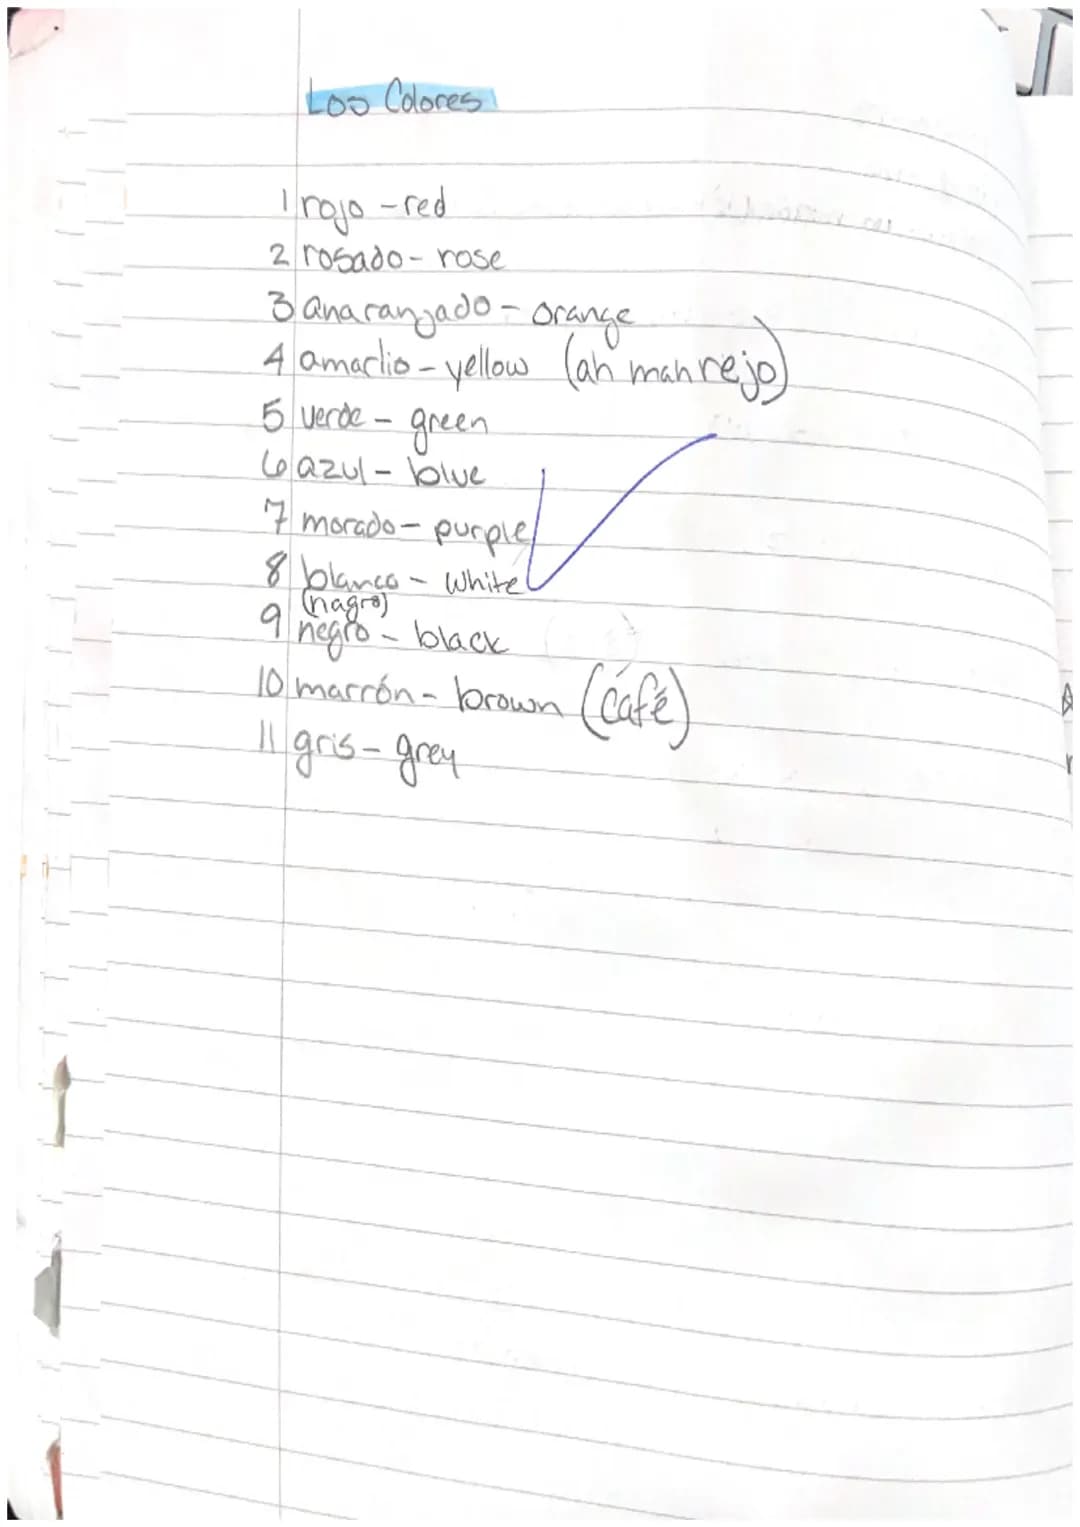 Los Colores
1 rojo - red
2 rosado - rose
3 anaranjado - orange
4 amarlio - yellow (ah mah rejo)
5 verde - green
6 azul - blue
7 morado - purple
8 blanco - white
(nagro)
9 negro - black
10 marrón - brown (café)
11 gris - grey